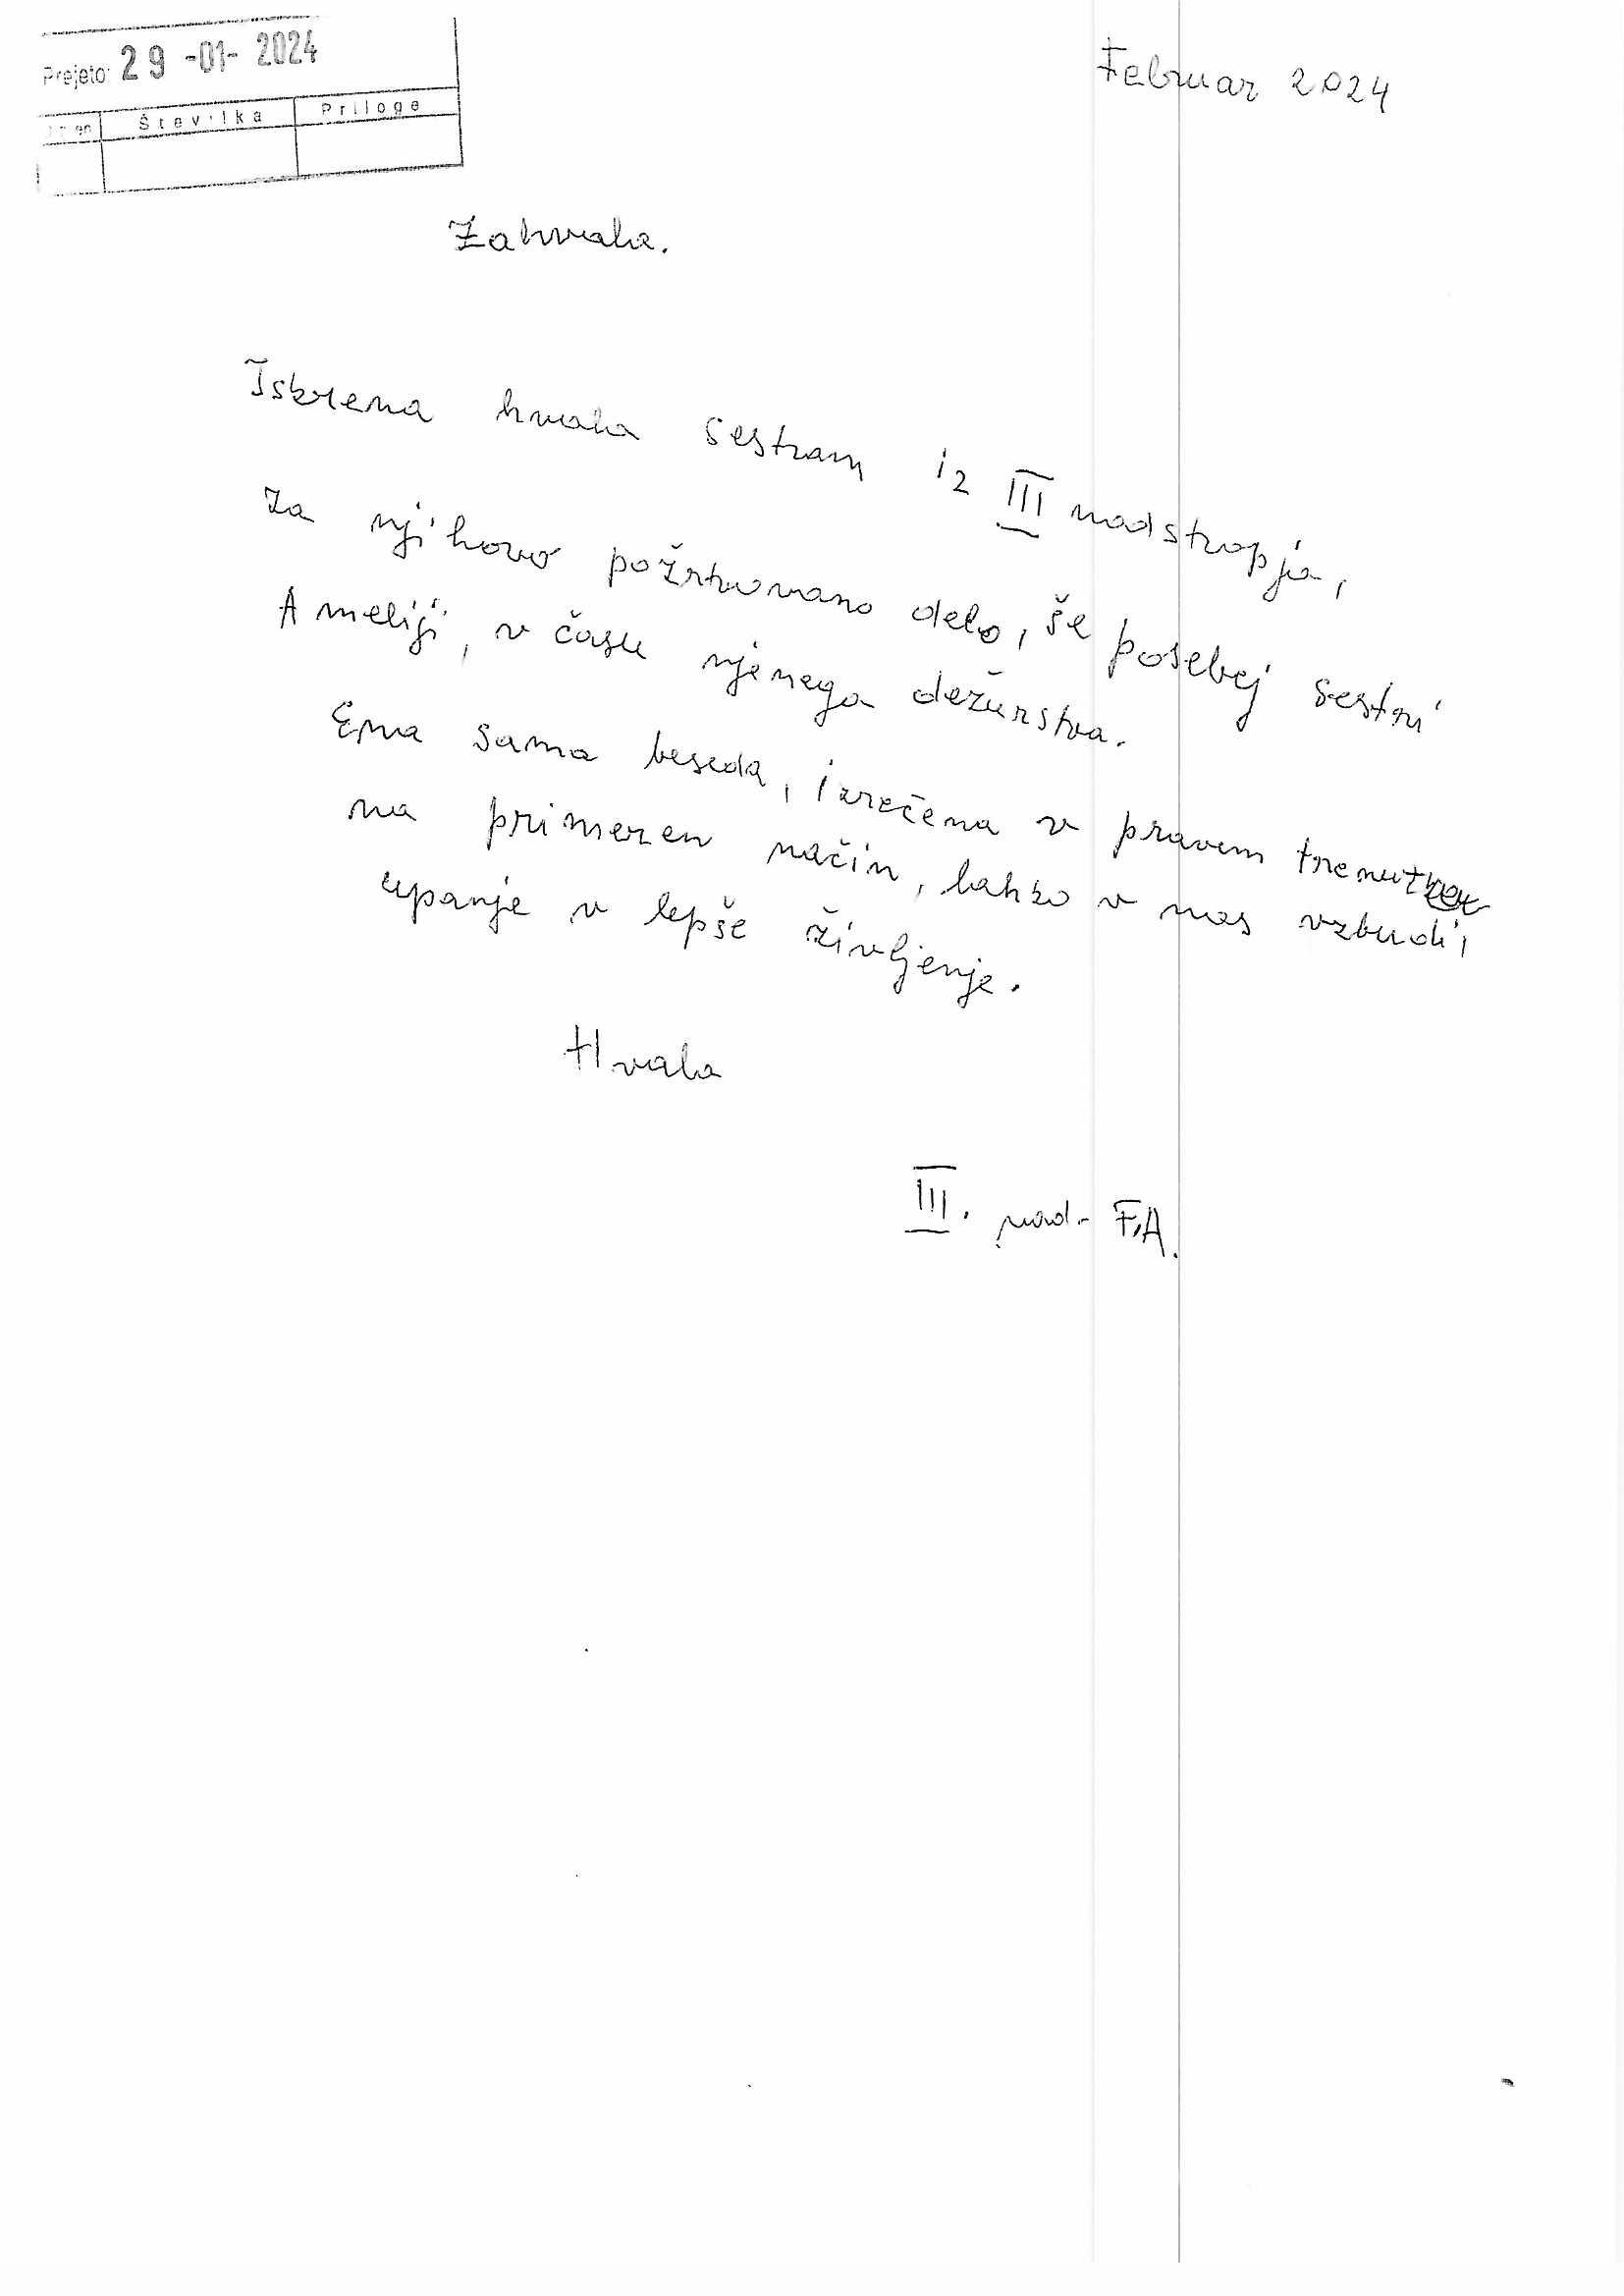 Prejeto: 29 -01- 2024
Številka Priloge
Februar 2024
Zahvala.
Iskrena hvala sestram iz III nadstropja,
za njihovo požrtvovano delo, še posebej sestri
Ameliji, v času njenega dežurstva.
Ena sama beseda, izrečena v pravem trenutku
na primeren način, lahko v nas vzbudi,
upanje v lepše življenje.
Hvala
III. nad. F.A.